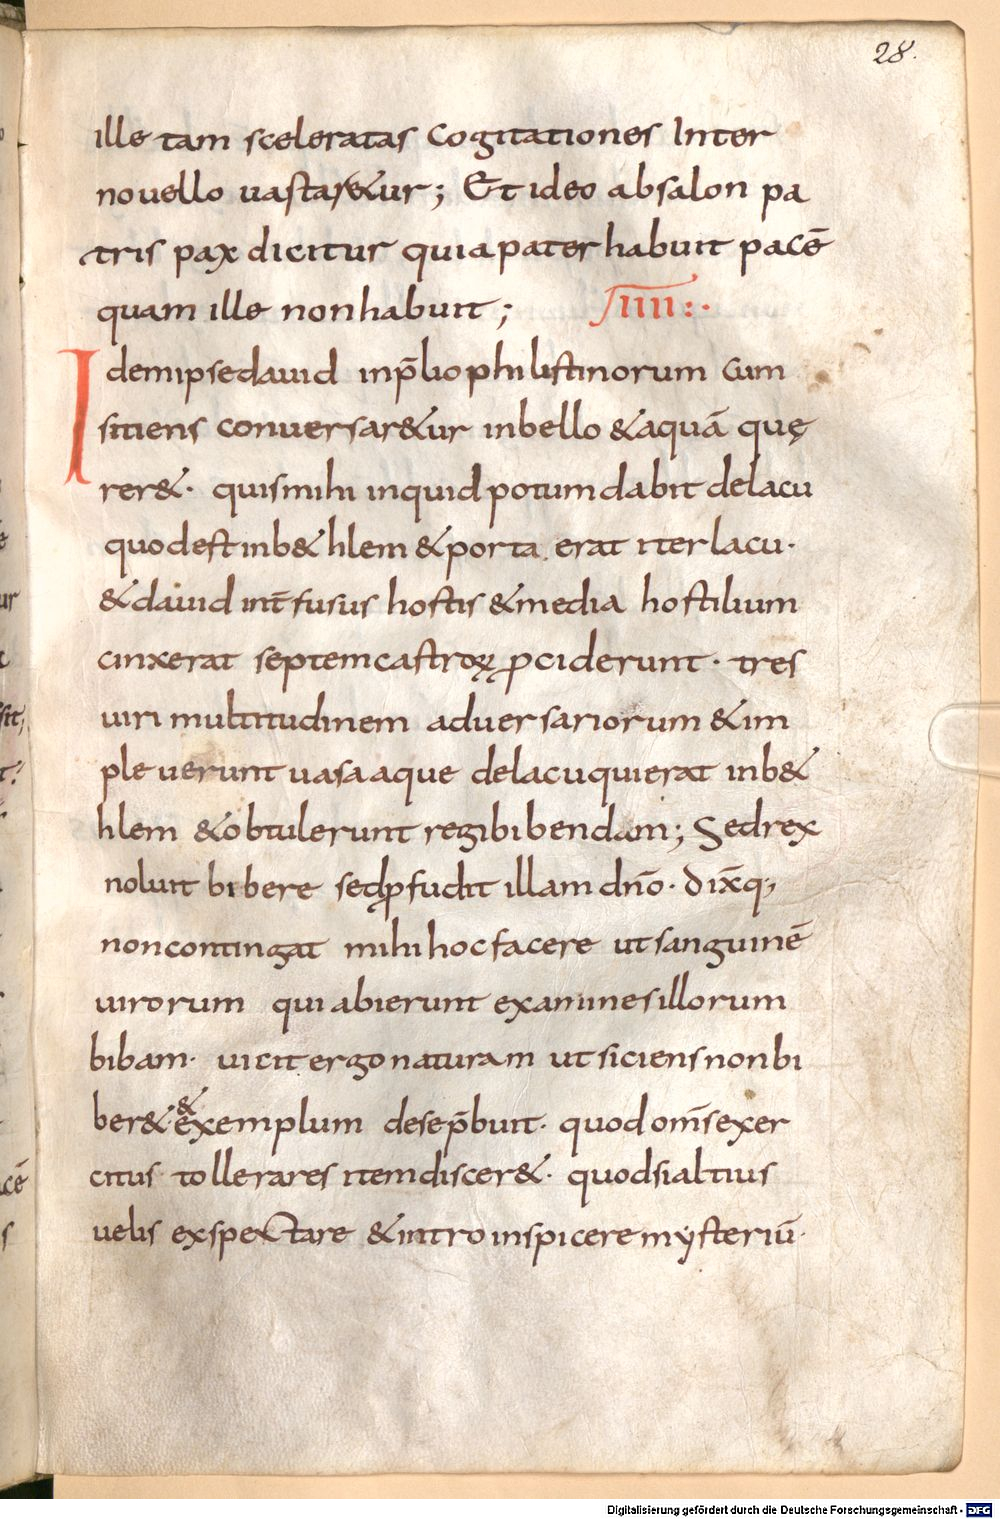 28.
ille tam sceleratas cogitationes Inter
nouello uastar&ur; Et ideo absalon pa
tris pax dicitur quia pater habuit pacē
quam ille non habuit; IIII:.
Idem ipse dauid in p̄lio philistinorum cum
sitiens conuersar&ur in bello & aquā quę
rer&. quis mihi inquid potum dabit de lacu
quod est in b&hlem & porta erat iter lacu.
& dauid int̄fusus hostis & media hostilium
cinxerat septem castroꝝ ꝓciderunt. tres
uiri multitudinem aduersariorum & im
pleuerunt uasa aque de lacu qui erat in b&
hlem & obtulerunt regi bibendam; Sed rex
noluit bibere sed ꝓfudit illam dnō. dix̄q;
non contingat mihi hoc facere ut sanguinē
uirorum qui abierunt ex animes illorum
bibam. uicit ergo naturam ut siciens non bi
ber& & exemplum de se p̄buit. quod om̄s exer
citus tollerares item discer&. quod si altius
uelis exspectare & intro inspicere mysteriū.
Digitalisierung gefördert durch die Deutsche Forschungsgemeinschaft - DFG